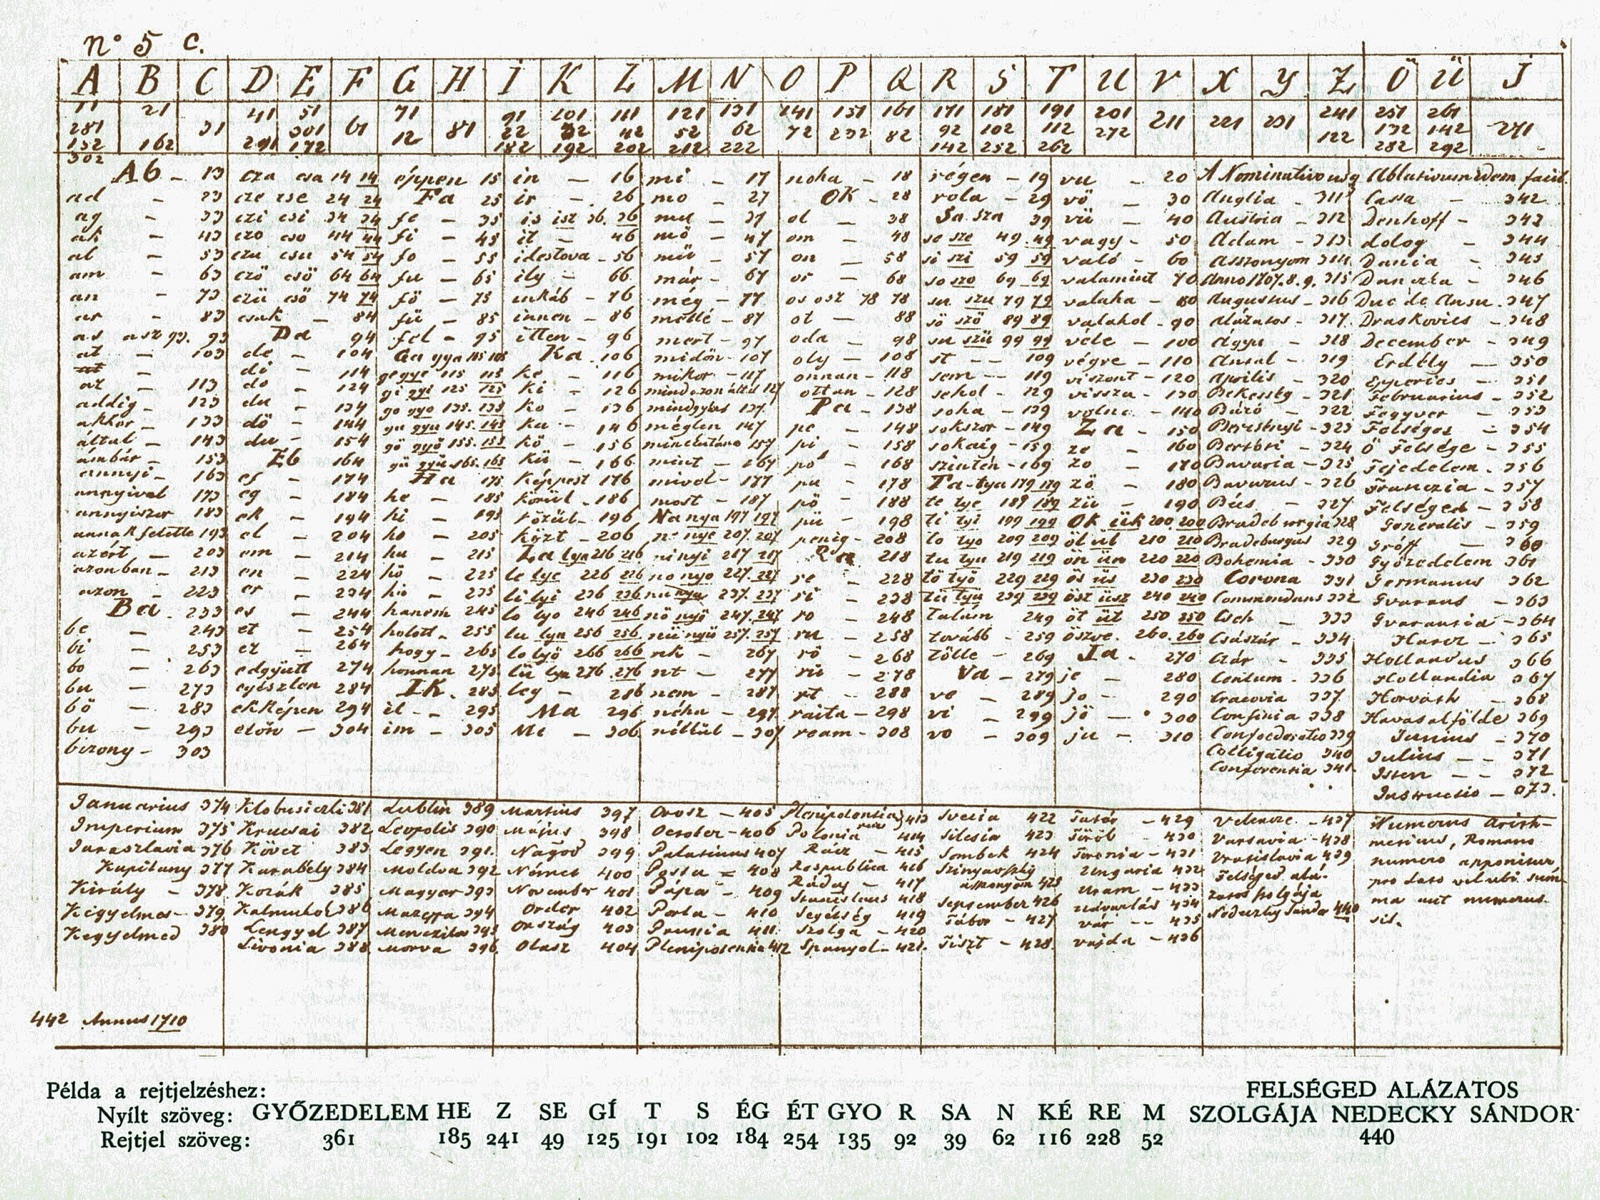 n° 5 c.
A B C D E F G H I K L M N O P Q R S T U V X Y Z Ö Ü J
11 21 41 51 71 91 101 111 121 131 141 151 161 171 181 191 201 241 251 261
281 31 301 61 81 22 32 42 52 62 72 232 82 92 102 112 272 211 221 231 122 132 142 271
152 162 291 172 12 182 192 202 212 222 142 252 262 282 292
302
Ab - 13 cza csa 14 14 éppen 15 in - 16 mi - 17 noha - 18 régen - 19 vu - 20 A Nominativo usq Ablativum idem facit.
ad - 23 cze cse 24 24 Fa 25 ir - 26 mo - 27 OK - 28 rola - 29 vö - 30 Anglia - 311 Cassa - 342
ag - 33 czi csi 34 34 fe - 35 is isz 36 36 mu - 37 ol - 38 Sa sza 39 vü - 40 Austria - 312 Denhoff - 343
ak - 43 czo cso 44 44 fi - 45 it - 46 mö - 47 om - 48 se sze 49 49 vagy - 50 Adam - 313 dolog - 344
al - 53 czu csu 54 54 fo - 55 idestova - 56 mü - 57 on - 58 si szi 59 59 való - 60 Asszonyom 314 Dania - 345
am - 63 czö csö 64 64 fu - 65 ily - 66 már - 67 or - 68 so szo 69 69 valamint 70 Anno 1707.8.9. 315 Danczka - 346
an - 73 74 74 fö - 75 inkáb - 76 még - 77 os osz 78 78 su szu 79 79 valaha - 80 Augustus - 316 347
ar - 83 csak - 84 fü - 85 innen - 86 mellé - 87 ot - 88 sö szö 89 89 valahol - 90 Alázatos - 317 Draskovics - 348
as asz 93 93 Da 94 fel - 95 itten - 96 mert - 97 oda - 98 sü szü 99 99 vele - 100 Agya - 318 December - 349
at - 103 de - 104 Ga gya 105 105 Ka 106 midőn - 107 oly - 108 st - 109 végre - 110 Antal - 319 Erdély - 350
di - 114 ge gye 115 115 ke - 116 mikor - 117 onnan - 118 sem - 119 viszont - 120 Aprilis - 320 Epperies - 351
az - 113 do - 124 gi gyi 125 125 ki - 126 mindazonáltal 127 ottan - 128 sehol - 129 vissza - 130 Bekesség - 321 Februarius - 352
addig - 123 du - 134 go gyo 135 135 ko - 136 mindgyárt 137 Pa - 138 soha - 139 volna - 140 Báró - 322 Fegyver - 353
akkor - 133 dö - 144 gu gyu 145 145 ku - 146 méglen 147 pe - 148 sokszor - 149 Za - 150 323 Felséges - 354
által - 143 dü - 154 gö gyö 155 155 kö - 156 minekutána 157 pi - 158 sokaig - 159 ze - 160 Bertbri - 324 Ö Felsége - 355
ámbár - 153 Eb 164 gü gyü 165 165 kü - 166 mint - 167 po - 168 szintén - 169 zo - 170 Bavaria - 325 Fejedelem - 356
annyi - 163 ef - 174 Ha 175 képpest 176 mivel - 177 pu - 178 Ta - tya 179 179 zö - 180 Bavarus - 326 Franczia - 357
annyival 173 eg - 184 he - 185 körül - 186 most - 187 pö - 188 te tye 189 189 zü - 190 Bús - 327 Felséged - 358
annyiszor 183 ek - 194 hi - 195 közül - 196 Na nya 197 197 pü - 198 ti tyi 199 199 Ök ük 200 200 Bradeburgia 328 Generalis - 359
annak felette 193 el - 204 ho - 205 közt - 206 ne nye 207 207 penig - 208 to tyo 209 209 öl ül 210 210 Bradeburgus 329 Gróff - 360
azért - 203 em - 214 hu - 215 La lya 216 216 ni nyi 217 217 Ra 218 tu tyu 219 219 ön ün 220 220 Bohemia - 330 Győzedelem 361
azonban - 213 en - 224 hö - 225 le lye 226 226 no nyo 227 227 re - 228 tö työ 229 229 ös üs 230 230 Corona 331 Germanus - 362
azon - 223 er - 234 hü - 235 li lyi 236 236 nu nyu 237 237 ri - 238 tü tyü 239 239 ösz üsz 240 240 Commendans 332 Gvarans - 363
Ba - 233 es - 244 hanem 245 lo lyo 246 246 nö nyö 247 247 ro - 248 talám 249 öt üt 250 250 Cseh - 333 Gvarantia - 364
be - 243 et - 254 holott - 255 lu lyu 256 256 nü nyü 257 257 ru - 258 tovább - 259 öszve 260 260 Császár - 334 Harcz - 365
bi - 253 ez - 264 hogy - 265 lö lyö 266 266 nk - 267 rö - 268 tölle - 269 Ja - 270 Czár - 335 Hollandus 366
bo - 263 edgyütt 274 honnan 275 lü lyü 276 276 nt - 277 rü - 278 Va - 279 je - 280 Centum - 336 Hollandia 367
bu - 273 egészlen 284 IK - 285 leg - 286 nem - 287 rt - 288 ve - 289 jo - 290 Cracovia - 337 Horváth - 368
bö - 283 ekképen 294 il - 295 Ma 296 néha - 297 raita - 298 vi - 299 jö - 300 Confinia 338 Havasalfölde 369
bü - 293 előtt - 304 im - 305 Me - 306 nélkül - 307 ream - 308 vo - 309 ju - 310 Confoederatio 339 Junius - 370
bizony - 303 Colligatio 340 Julius - - 371
Conferentia 341 Isten - - 372
Instructio - 373.
Januarius 374 Klobusiczki 381 Lublin 389 Martius 397 Orosz - 405 Plenipotentiarius 413 Svecia 422 Tatár - 429 Velencze - 437 Numerus Arith-
Imperium 375 Krucsai 382 Leopolis 390 Május 398 October - 406 Polonia 414 Silesia 423 Török - 430 Varsavia - 438 meticus, Romano
Jaraszlavia 376 Követ 383 Legyen 391 Nagyod 399 Palatinus 407 Rácz - 415 Sombek 424 431 Vratislavia 439 numero apponitur,
Kapitany 377 Karabély 384 Moldva 392 Német 400 Posta = 408 Respublica 416 Szinyavszky Ungaria 432 Felséged alá- pro dato vel ubi sum-
Király - 378 Kozák 385 Magyar 393 November 401 Pápa - 409 Ráday - 417 asszonyom 425 Uram - 433 zatos szolgája ma aut numerus
Kegyelmes - 379 Kalmukok 386 394 Order 402 Porta - 410 Stanislaus 418 September 426 Udvarlás 434 Nedeczky Sándor 440 sis.
Kegyelmed 380 Lengyel 387 395 Ország 403 Prussia 411 Segétség 419 Tábor - 427 vár - 435
Livonia 388 Morva 396 Olasz 404 Plenipotentia 412 Szolga - 420 Tiszt - 428 vajda - 436
Spanyol - 421
442 Annus 1710
Példa a rejtjelzéshez:
Nyílt szöveg: GYŐZEDELEM HE Z SE GÍ T S ÉG ÉT GYO R SA N KÉ RE M FELSÉGED ALÁZATOS SZOLGÁJA NEDECKY SÁNDOR
Rejtjel szöveg: 361 185 241 49 125 191 102 184 254 135 92 39 62 116 228 52 440